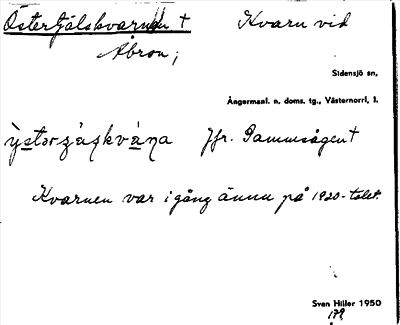 Östertjälskvarnen † Kvarn vid
Åbron;
Sidensjö sn,
Ångermanl. n. doms. tg., Västernorrl, l.
Jfr. Dammsågen †
Kvarnen var i gång ännu på 1920-talet.
Sven Hiller 1950
179.